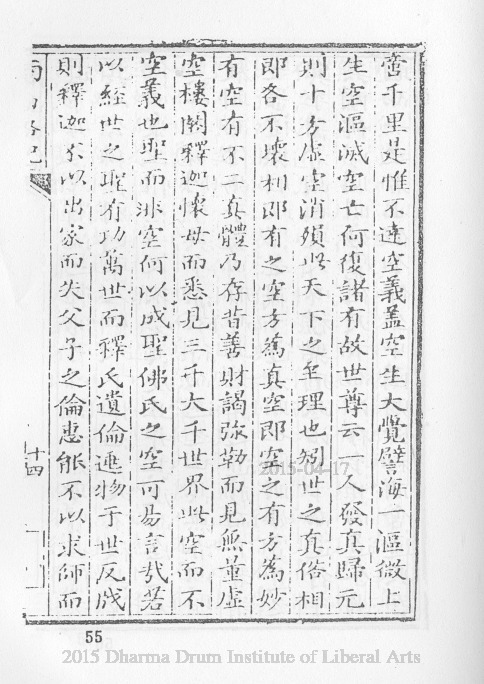 啻千里是惟不達空義蓋空生大覺譬海一漚微上
生空漚滅空亡何復諸有故世尊云一人發真歸元
則十方虛空消殞此天下之至理也矧世之真俗相
即各不壞相即有之空方為真空即空之有方為妙
有空有不二真體乃存昔善財謁弥勒而見無量虛
空樓閣釋迦懷母而悉見三千大千世界此空而不
空義也聖而非空何以成聖佛氏之空可易言哉若
以經世之聖有功萬世而釋氏遺倫連物于世反戾
則釋迦不以出家而失父子之倫惠能不以求師而
十四
55
2015-04-17
2015 Dharma Drum Institute of Liberal Arts